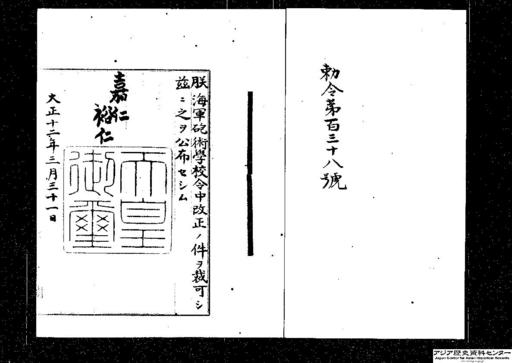 勅令第百三十八號
朕海軍砲術學校令中改正ノ件ヲ裁可シ
茲ニ之ヲ公布セシム
嘉仁
裕仁
天皇
御璽
大正十二年三月三十一日
アジア歴史資料センター
Japan Center for Asian Historical Records